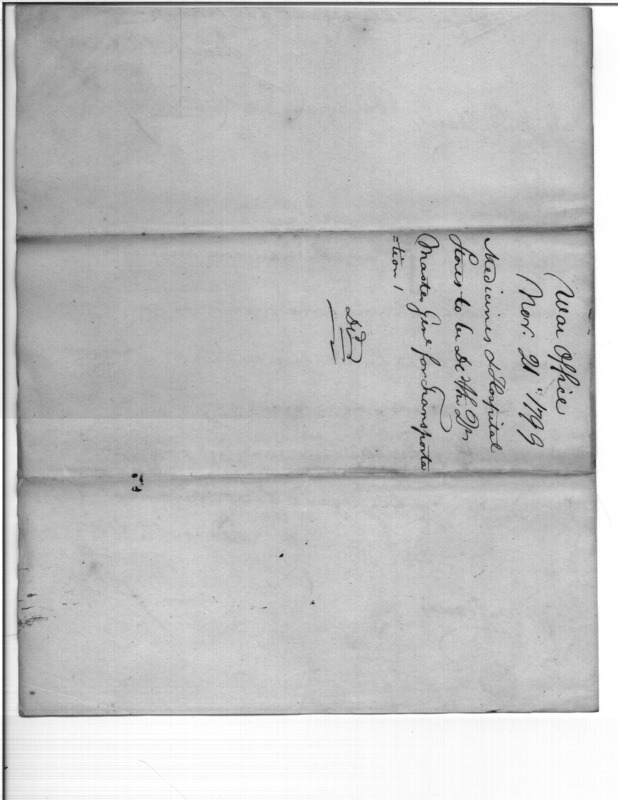 War Office
Nov. 21st 1799
Medicines & Hospital
Stores to be
Master Genl for Transporta
=tion